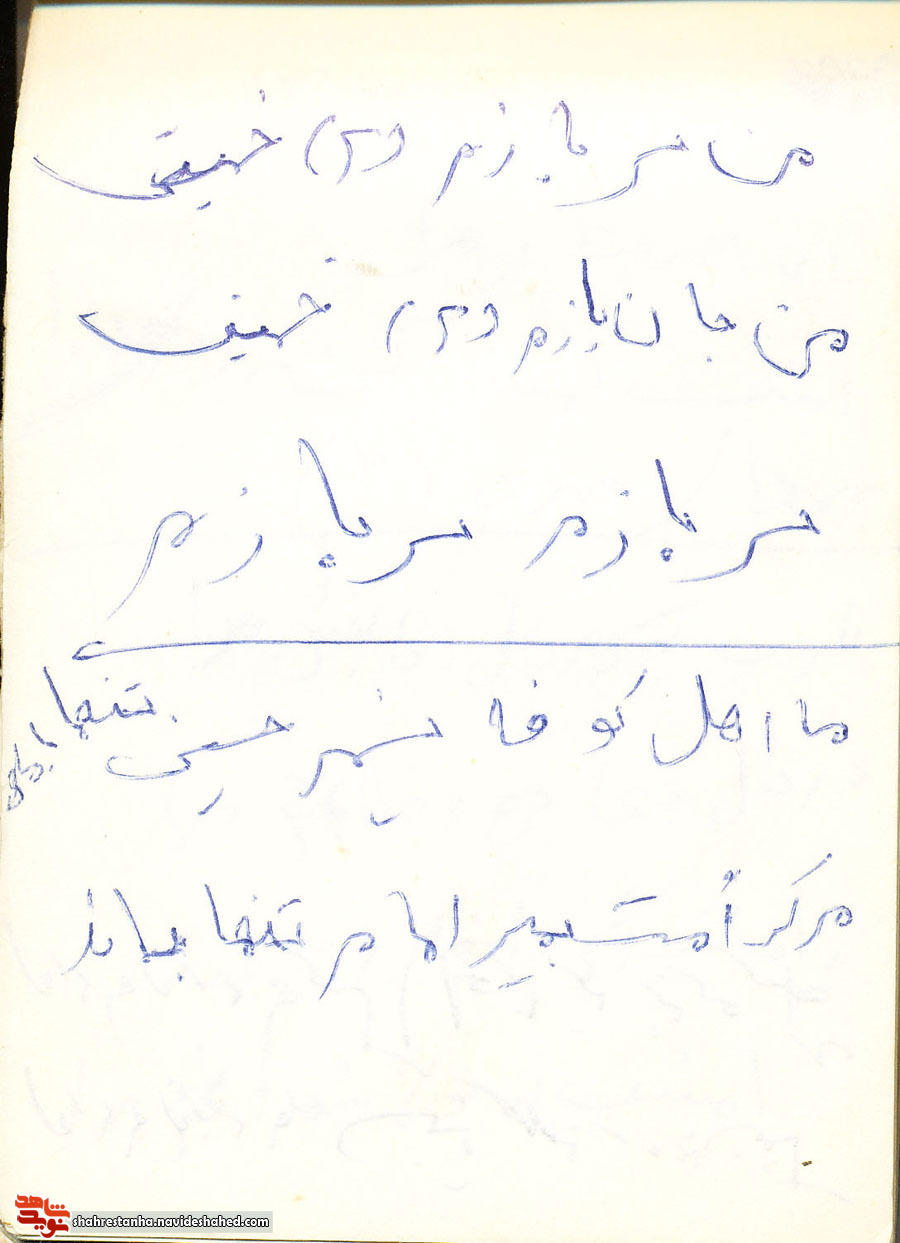 من سربازم (۲) خمینی
من جان بازم (۲) خمینی
سربازم سربازم
ما اهل کوفه نیستیم حسین تنها
بماند
مرگ امت بمیرد امام تنها بماند
نوید شاهد
shahrestanha.navideshahed.com